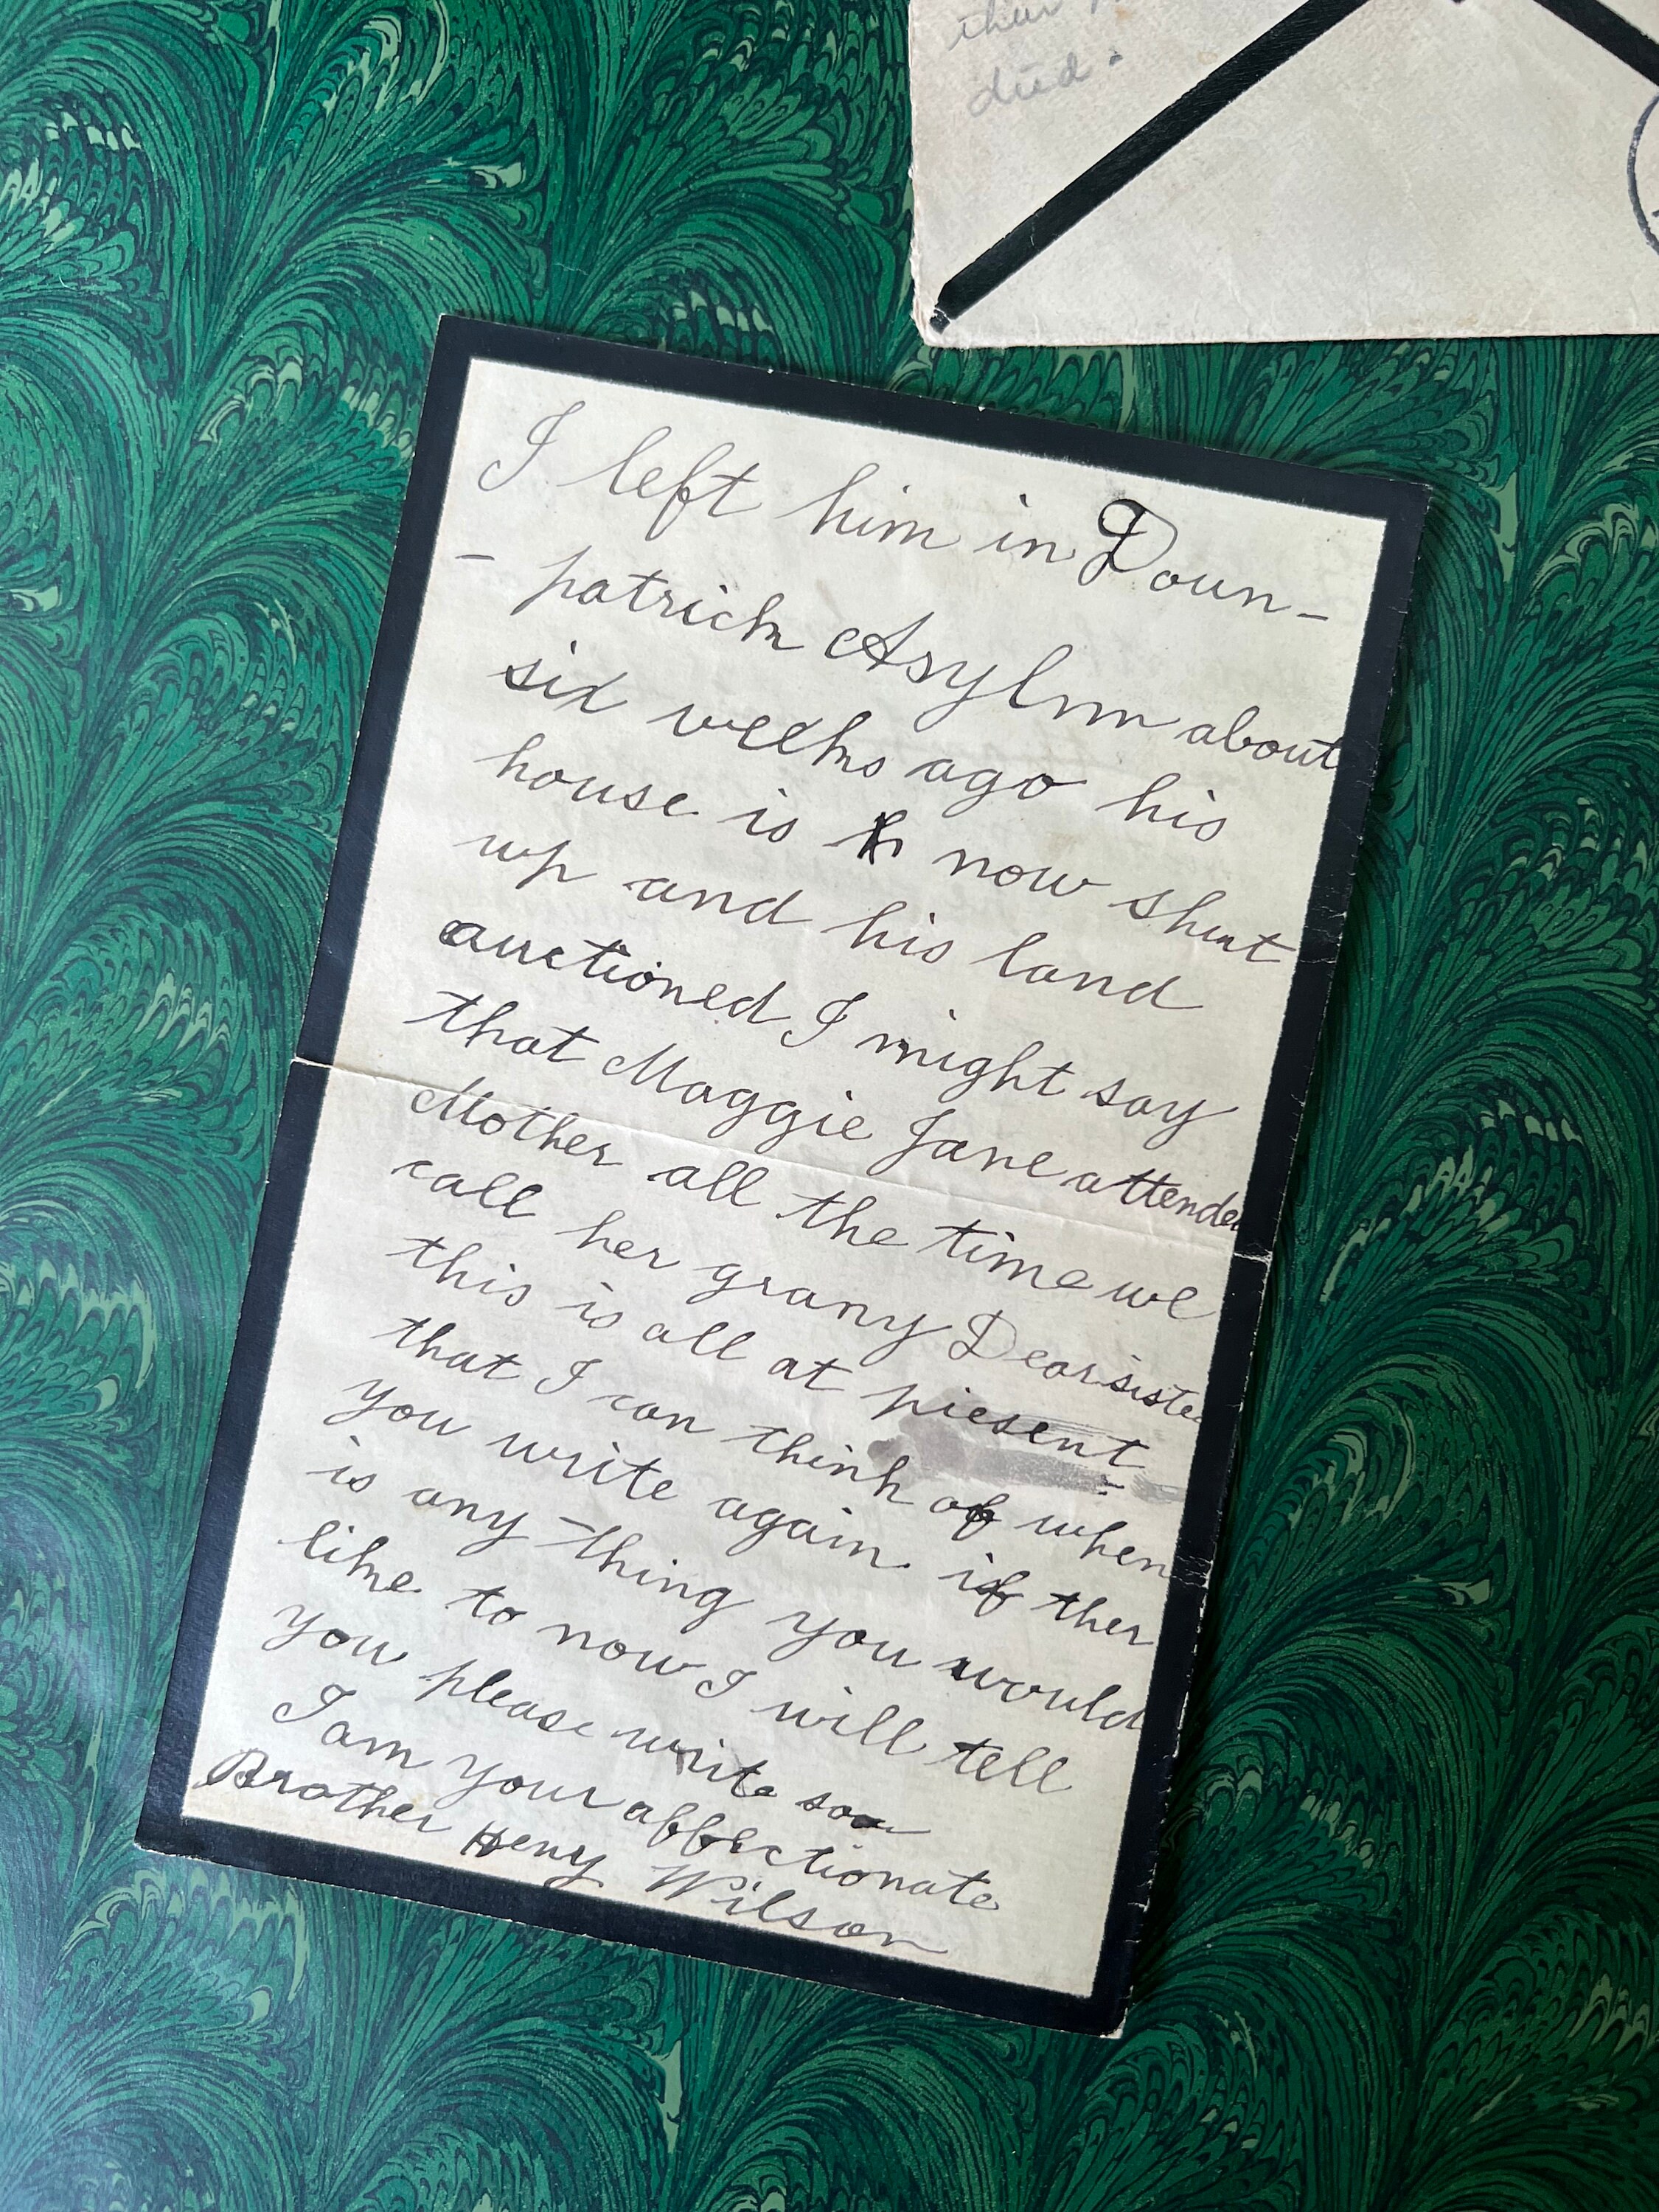 their
died.
I left him in Doun-
- patrick Asylum about
six weeks ago his
house is now shut
up and his land
auctioned I might say
that Maggie Jane attended
Mother all the time we
call her grany Dear sister
this is all at present
that I can think of when
you write again if ther
is any-thing you would
like to now I will tell
you please write soon
I am your affectionate
Brother Heny Wilson